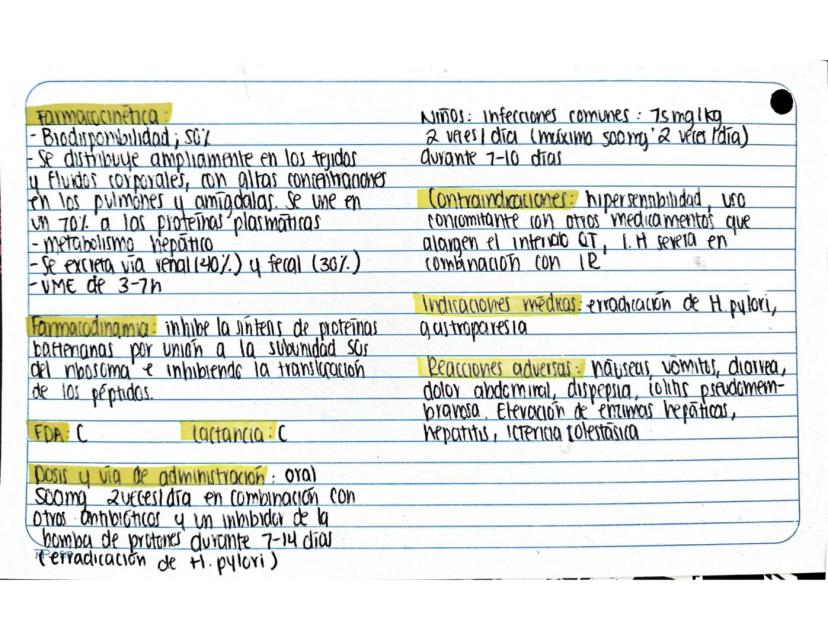 Farmacocinética:
- Biodisponibilidad; 50%
- Se distribuye ampliamente en los tejidos
y fluidos corporales, con altas concentraciones
en los pulmones y amígdalas. Se une en
un 70% a las proteínas plasmáticas
- metabolismo hepático
- Se excreta vía renal (40%) y fecal (30%)
- VME de 3-7h
Farmacodinamia: inhibe la síntesis de proteínas
bacterianas por unión a la subunidad 50s
del ribosoma e inhibiendo la translocación
de los péptidos.
FDA: C Lactancia: C
Dosis y vía de administración: oral
500mg 2 veces/día en combinación con
otros antibióticos y un inhibidor de la
bomba de protones durante 7-14 días
(erradicación de H. pylori)
Niños: infecciones comunes: 7.5mg/kg
2 veces/día (máximo 500mg 2 veces/día)
durante 7-10 días
Contraindicaciones: hipersensibilidad, uso
concomitante con otros medicamentos que
alargen el intervalo QT, I.H severa en
combinación con IR
Indicaciones médicas: erradicación de H. pylori,
gastroparesia
Reacciones adversas: náuseas, vómitos, diarrea,
dolor abdominal, dispepsia, colitis pseudomem-
branosa. Elevación de enzimas hepáticas,
hepatitis, ictericia colestásica